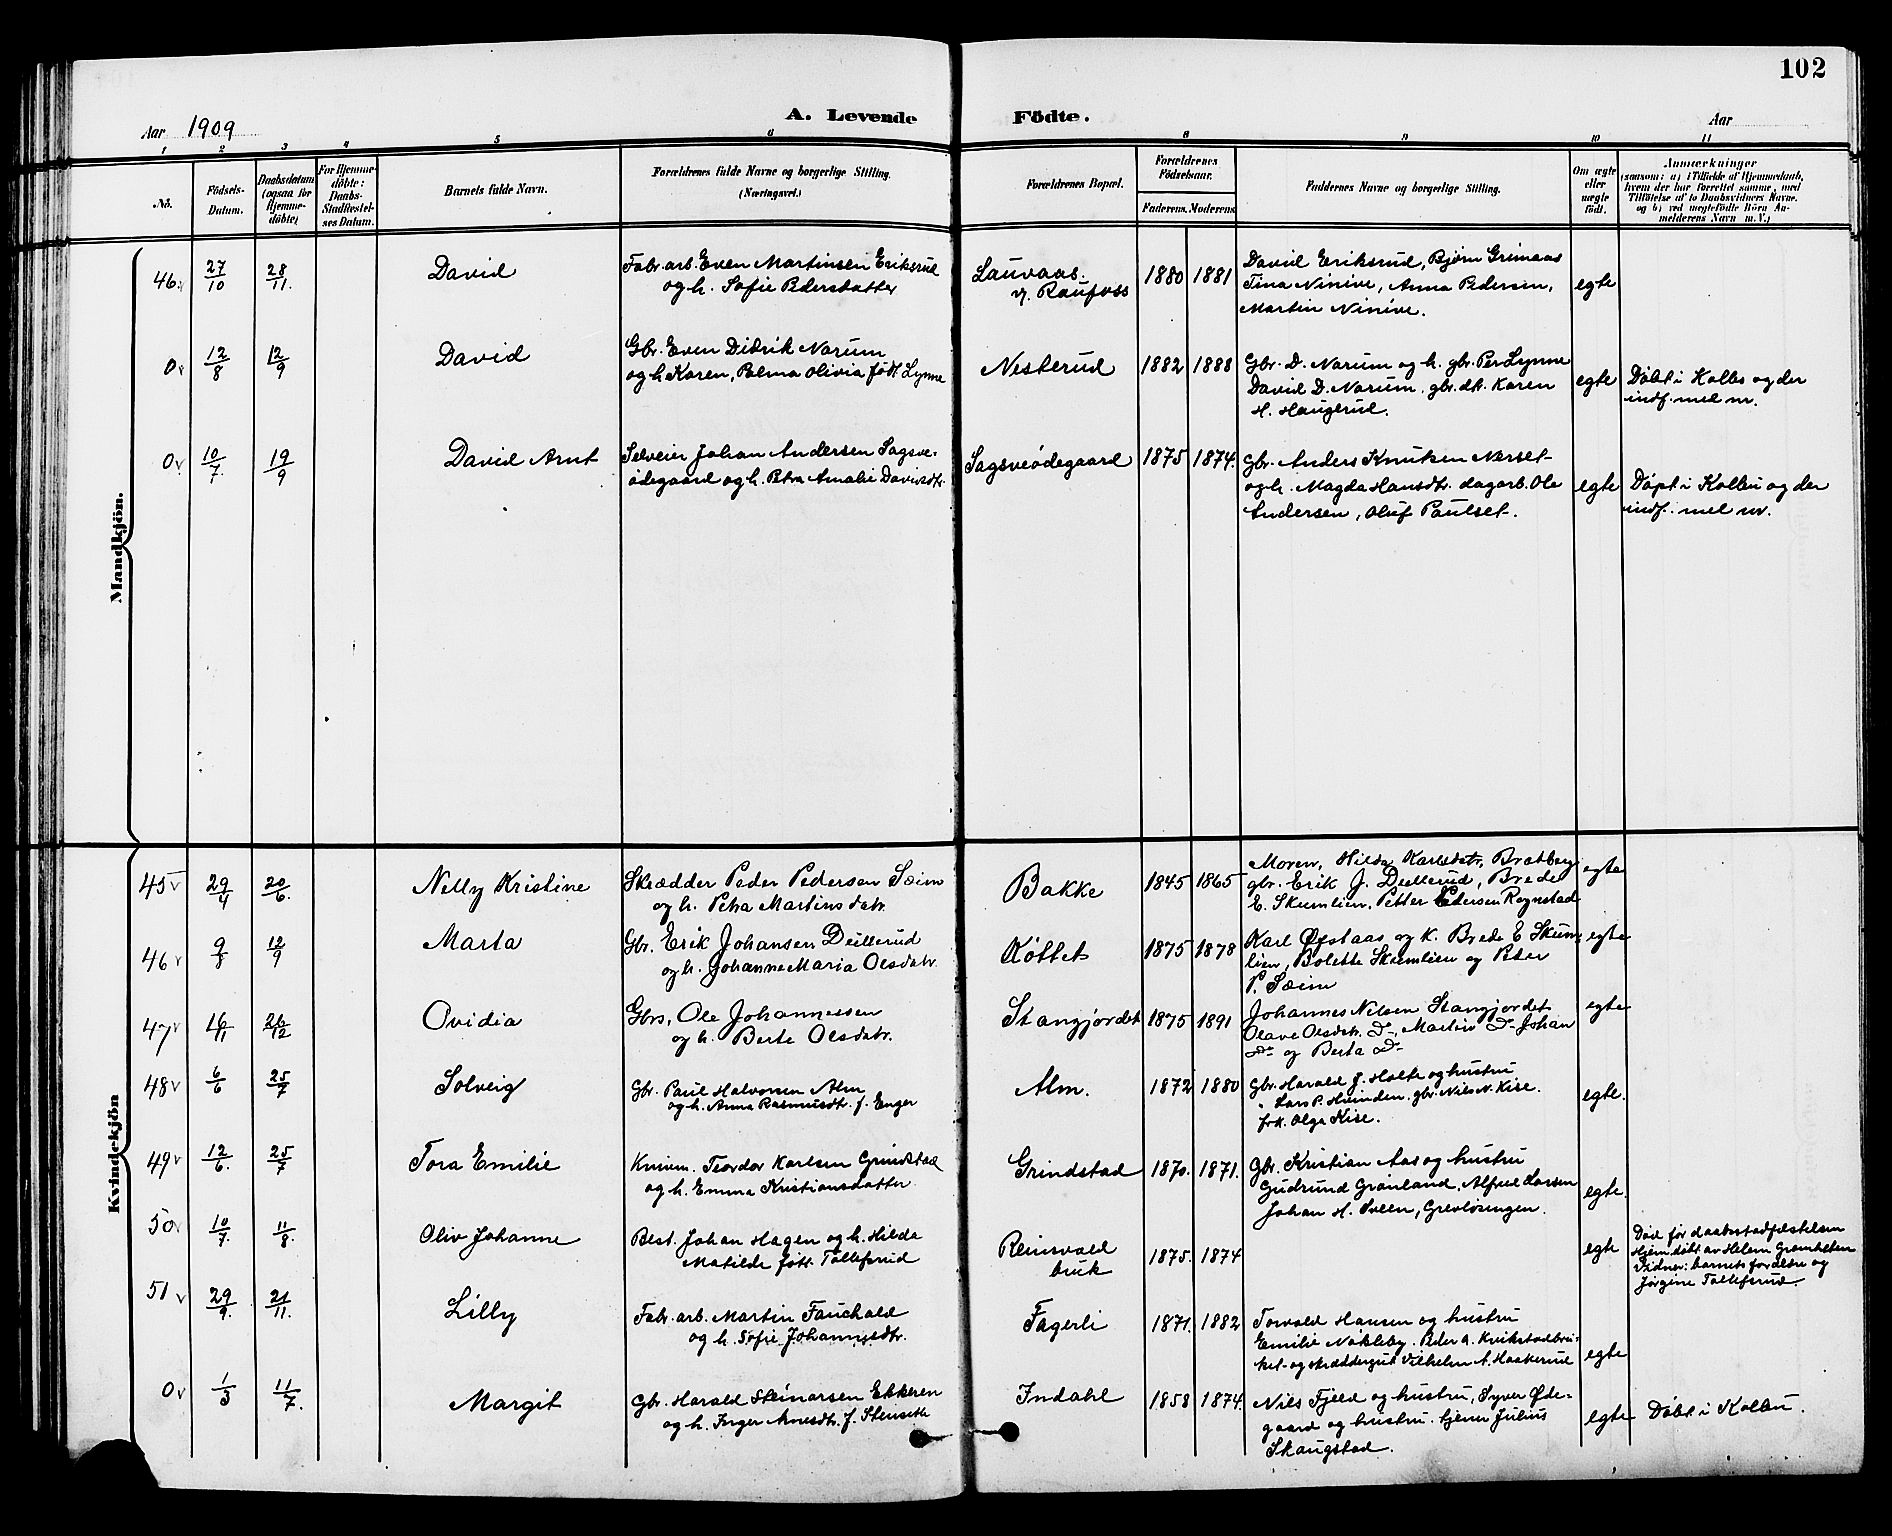 102
Aar 1909 A. Levende Födte. Aar
1 2 3 4 5 6 8 9 10 11
No. Födsels-Datum. Daabsdatum (ogsaa for Hjemme-döbte) For Hjemme-döbte: Daabs-Stadfæstel-ses Datum. Barnets fulde Navn. Forældrenes fulde Navne og borgerlige Stilling. (Næringsvei.) Forældrenes Bopæl. Forældrenes Födselsaar. Faderens. Moderens Faddernes Navne og borgerlige Stilling. Om ægte eller uægte födt. Anmærkninger (saasom: a) i Tilfælde af Hjemmedaab, hvem der har forrettet samme, med Tilföielse af to Daabsvidners Navne, og b) ved uægtefödte Börn An-melderens Navn m. V.)
Mandkjön.
46 27/10 28/11. David Fabr. arb. Even Martinsen Eriksrud
og h. Sofie Pedersdatter
Lauvaas.
v. Raufoss
1880 1881
David Eriksrud, Bjørn Grimaas
Tina Ninive, Anna Pedersen,
Martin Ninive.
egte
0 12/8 12/9 David Gbr. Even Didrik Narum
og h Karen, Palma Olivia født Lynne
Nesterud 1882 1888
Gbr. D. Narum og h. gbr. Per Lynne
David D. Narum. gbr. dt. Karen
H. Haugerud.
egte
Døbt i Kolbu og der
indf. med nr.
0 10/7. 19/9 David Arnt Selveier Johan Andersen Sagsve-
ødegaard og h. Petra Amalie Davidsdtr.
Sagsveødegaard 1875 1874.
Gbr. Anders Knutsen Nerset
og h. Magda Hansdtr. dagarb. Ole
Andersen, Oluf Paulset.
egte
Døpt i Kolbu og der
indf. med nr.
Kvindekjön
45 29/4 20/6. Nelly Kristine Skrædder Peder Pedersen Sæim
og h. Petra Martinsdatr.
Bakke 1845 1865
Moren, Hilda Karlsdtr, Bratberg
gbr. Erik J. Deillerud, Brede
E. Skumlien, Petter Pedersen Rognstad
egte
46 9/8 12/9 Marta Gbr. Erik Johansen Deillerud
og h. Johanne Maria Olsdatr.
Køttet 1875 1878
Karl Øfstaas og k. Brede E Skum-
lien, Bolette Skumlien og Peter
P. Sæim
egte
47 16/11 26/12 Ovidia Gbrs, Ole Johannessen
og h. Berte Olsdatr.
Stangjordet 1875 1891
Johannes Nilsen Stangjordet
Olave Olsdatr. do, Martin do Johan
do og Berta do
egte
48 6/6 25/7 Solveig Gbr. Paul Halvorsen Alm
og h. Anna Rasmusdtr. f. Enger
Alm. 1872 1880
Gbr. Harald J. Holte og hustru
" Lars P. Hveinden. gbr. Nils N. Kise.
frk. Olga Kise.
egte.
49 12/6. 25/7 Tora Emilie Teordor Karlsen Grindstad
og h. Emma Kristiansdatter
Grindstad 1870. 1871.
Gbr. Kristian Aas og hustru
Gudrund Grønland, Alfred Larsen
Johan H. Sveen, Grevløsingen.
egte.
50 10/7. 11/8. Oliv Johanne Best. Johan Hagen og h. Hilda
Matilde født Tollefsrud
Reinsvold
bruk
1875. 1874
egte
Død før daabsstadfæstelsen
Hjemdøbt av Helene Gramhelten
Vidner: barnets forældre og
Jørgine Tollefsrud.
51 29/9. 21/11. Lilly Fabr. arb. Martin Fauchald
og h. Sofie Johannesdtr.
Fagerli 1871. 1882
Torvald Hansen og hustru
Emilie Nøkleby. Peder A. Kvikstadbru-
ket og skræddergut Vilhelm A. Haakerud
egte
0 1/3 11/7. Margit Gbr. Harald Steinarsen Ekkeren
og h. Inger Anesdtr. f. Steinseth
Indahl 1858 1874.
Nils Fjeld og hustru, Syver Øde-
gaard og hustru. tjener Julius
Skaugstad.
egte Døbt i Kolbu.